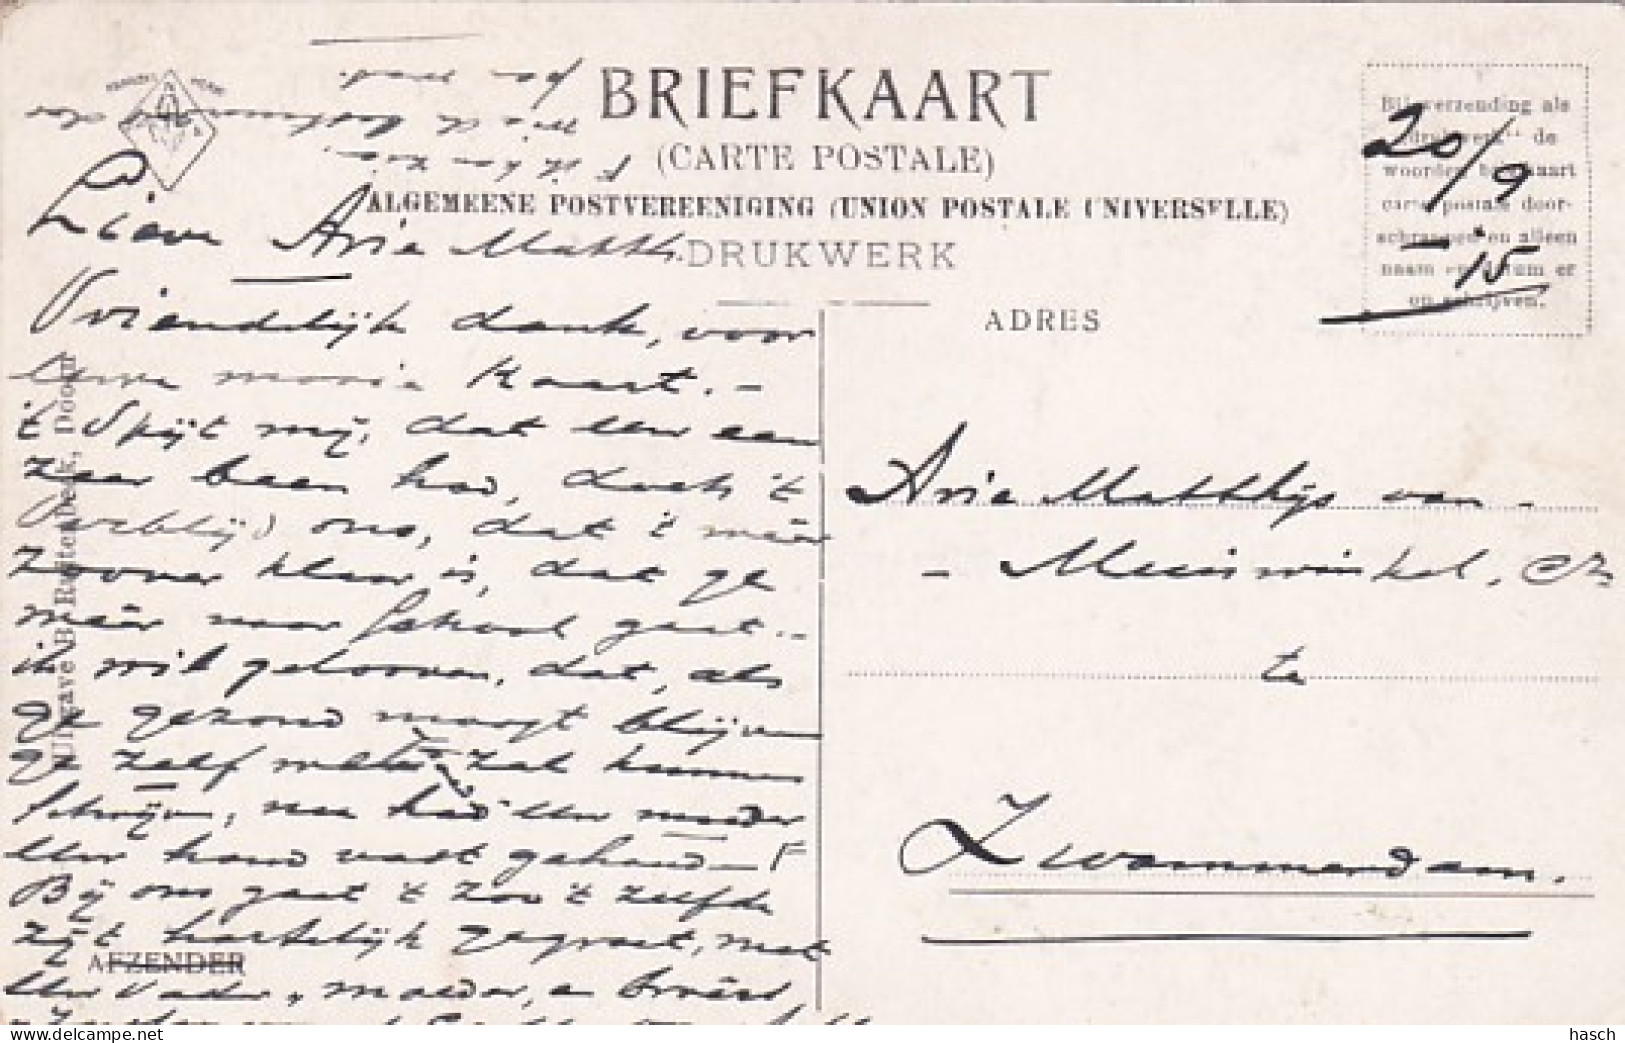 BRIEFKAART
(CARTE POSTALE)
ALGEMEENE POSTVEREENIGING (UNION POSTALE UNIVERSELLE)
DRUKWERK
ADRES
Bij verzending als
„drukwerk" de
woorden briefkaart
carte postale door-
schrappen en alleen
naam en datum er
op schrijven.
20/9
-15
Lieve Arie Matth.
Vriendelijk dank, voor
uwe mooie kaart. -
't Spijt mij, dat Uw een
zeer been had, doch 't
verblijd ons, dat 't mèèr
zoover klaar is, dat ge
mèèr naar School gaat. -
ik wil gelooven, dat, als
ge gezond moogt blijven
ge zelf zal kunnen
schrijven, nu had Uw moeder
Uw hand vast gehand -
Bij ons gaat 't zoo 't zelfde
zijt hartelijk gegroet, met
Uw Vader, moeder, en broêrs,
Arie Matthijs van -
- Muiswinkel, Cz
te
Zwammerdam.
AFZENDER
Uitgave B. Ruitenbeek, Doorn
hasch